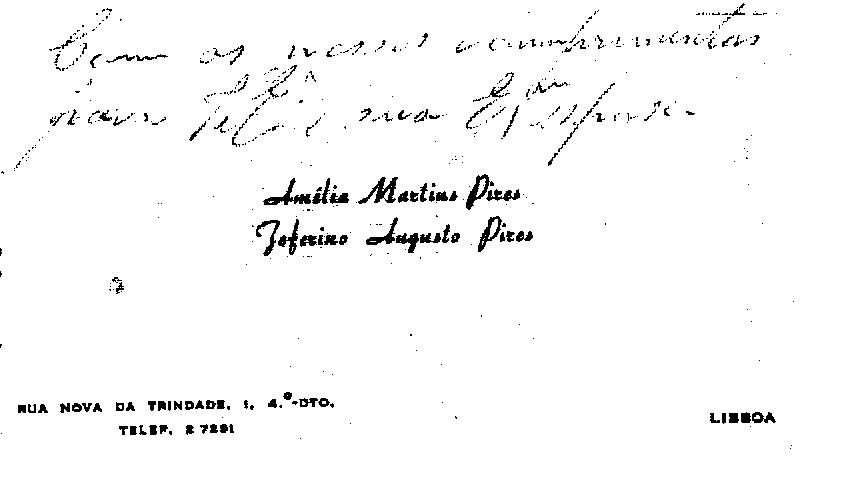 Com os nossos cumprimentos
para sua Exma Esposa.
Amélia Martins Pires
Zeferino Augusto Pires
RUA NOVA DA TRINDADE, 1, 4.º-DTO.
TELEF. 2 7291
LISBOA